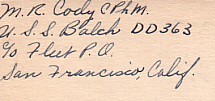 M. R. Cody CPhM.
U. S. S. Balch DD363
c/o Fleet P.O.
San Francisco, Calif.